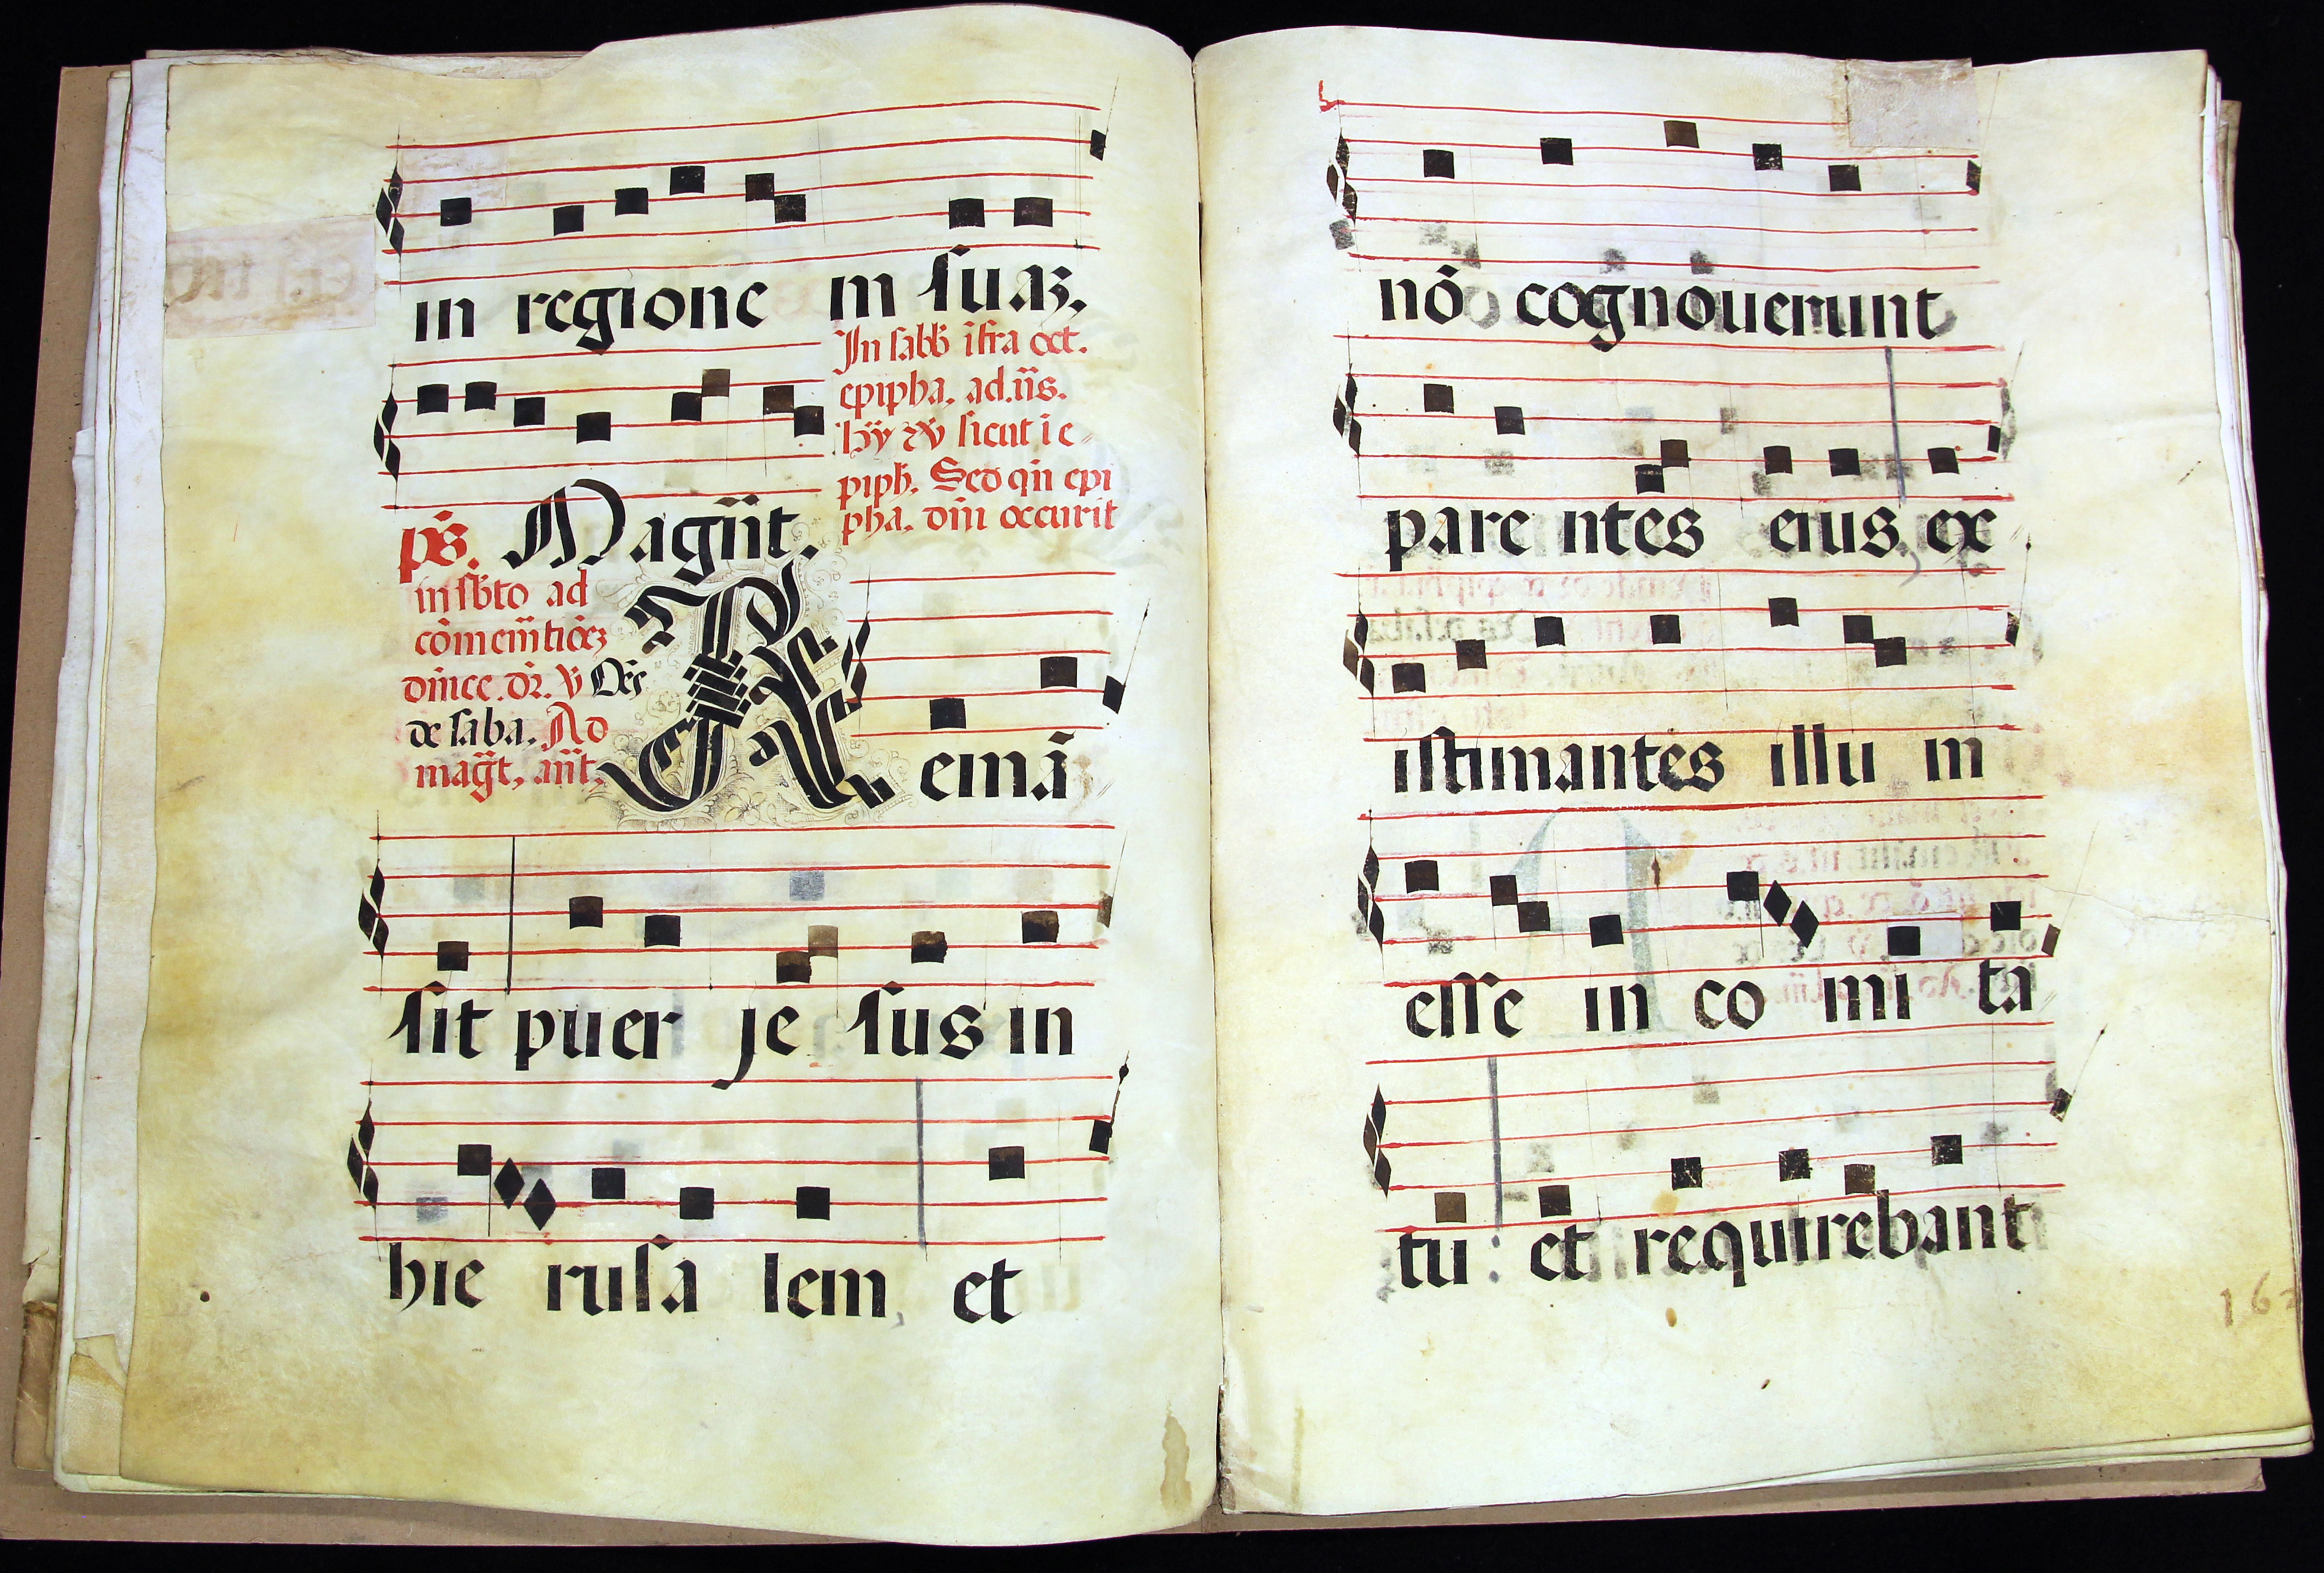 in regione in suaz.
In sabb̃ ĩfra oct.
epipha. ad. ũs.
hỹ sicut ĩ e
piph. Sed qñ epi
pha. dñi occurit
ps. Magñt.
in sbto ad
cõmemtiõez
dñice. dr. V Oẽs
de saba. Ad
magt. añt.
Remã
sit puer je sus in
hie rusa lem et
nõ cognouerunt
pare ntes eius, ex
istimantes illu in
esse in co mi ta
tu : et requirebant
162